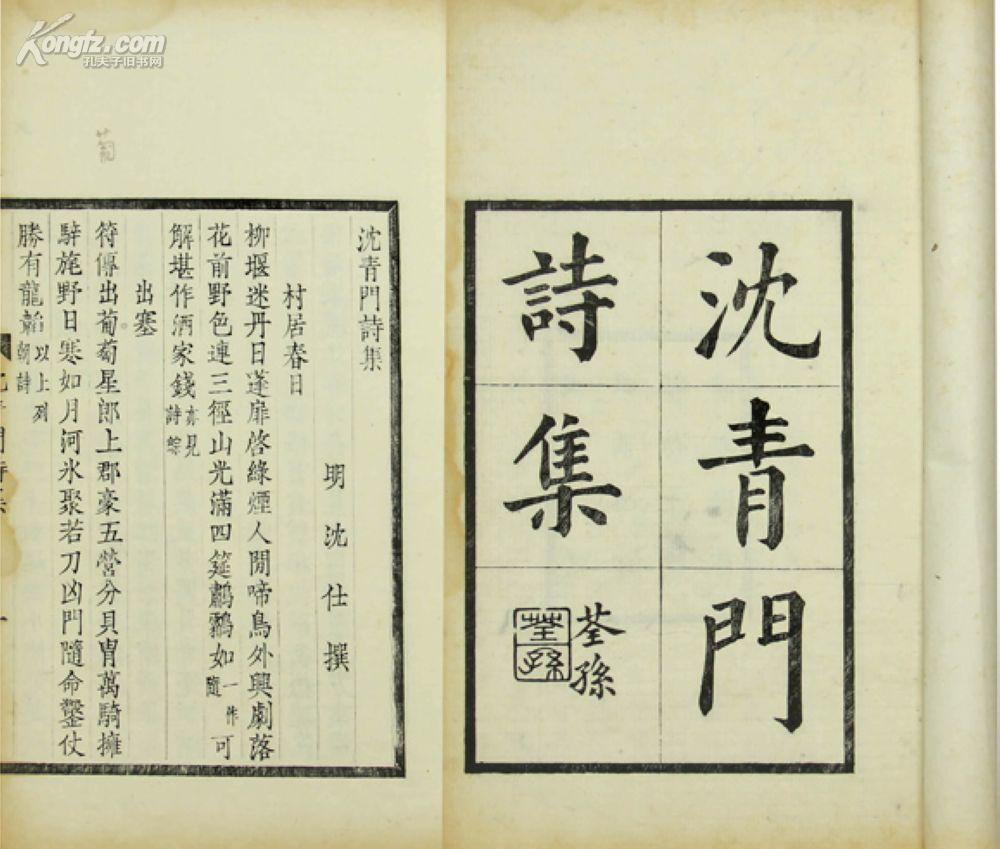 Kongfz.com
孔夫子旧书网
沈青門
詩集
荃孫
荃孫
沈青門詩集
明沈仕撰
村居春日
柳堰迷丹日蓬扉啓綠煙人閒啼鳥外興劇落
花前野色連三徑山光滿四筵鸕鷀如一作隨可
解堪作酒家錢亦見詩綜
出塞
符傳出葡萄星郎上郡豪五營分貝冑萬騎擁
騂旄野日寒如月河氷聚若刀凶門隨命鑿仗
勝有龍韜以上列朝詩